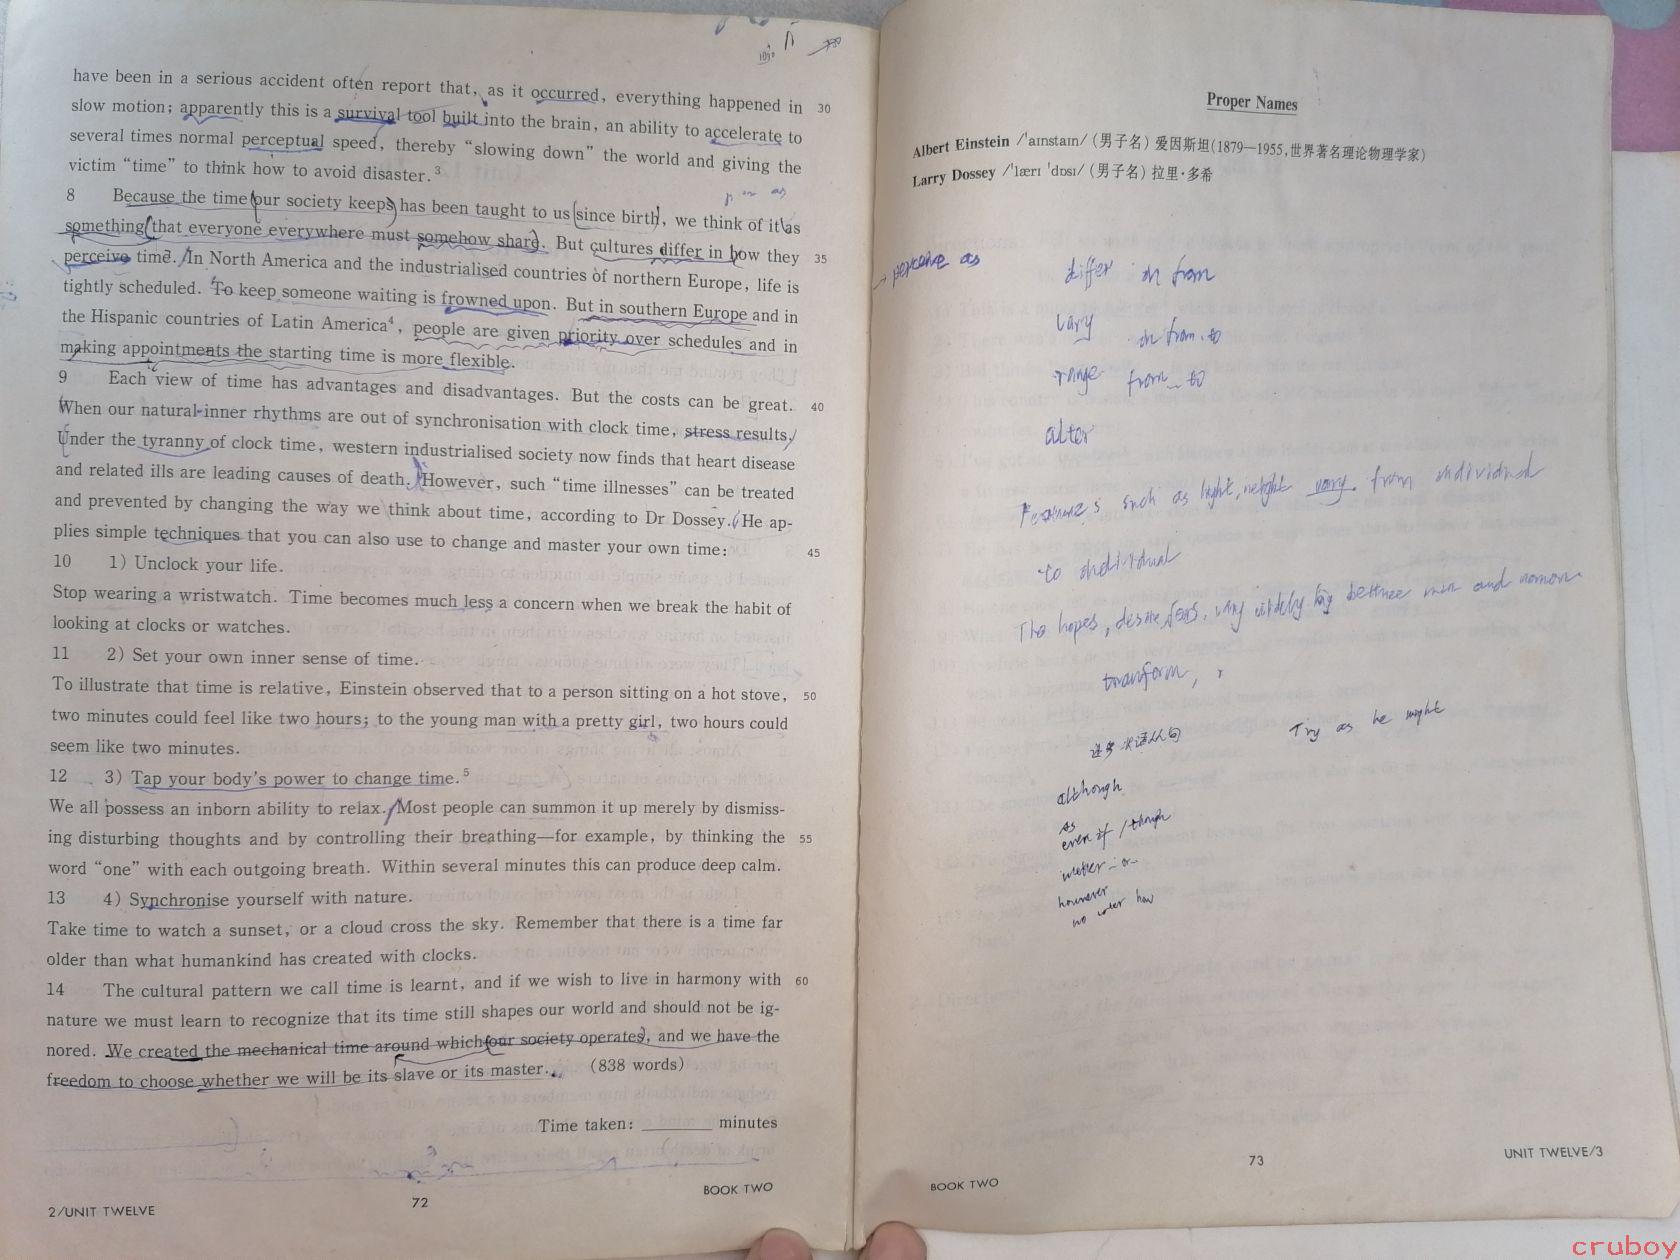 have been in a serious accident often report that, as it occurred, everything happened in 30
slow motion; apparently this is a survival tool built into the brain, an ability to accelerate to
several times normal perceptual speed, thereby “slowing down” the world and giving the
victim “time” to think how to avoid disaster.³
8 Because the time our society keeps has been taught to us since birth, we think of it as
something that everyone everywhere must somehow share. But cultures differ in how they 35
perceive time. In North America and the industrialised countries of northern Europe, life is
tightly scheduled. To keep someone waiting is frowned upon. But in southern Europe and in
the Hispanic countries of Latin America⁴, people are given priority over schedules and in
making appointments the starting time is more flexible.
9 Each view of time has advantages and disadvantages. But the costs can be great. 40
When our natural inner rhythms are out of synchronisation with clock time, stress results.
Under the tyranny of clock time, western industrialised society now finds that heart disease
and related ills are leading causes of death. However, such “time illnesses” can be treated
and prevented by changing the way we think about time, according to Dr Dossey. He ap-
plies simple techniques that you can also use to change and master your own time: 45
10 1) Unclock your life.
Stop wearing a wristwatch. Time becomes much less a concern when we break the habit of
looking at clocks or watches.
11 2) Set your own inner sense of time.
To illustrate that time is relative, Einstein observed that to a person sitting on a hot stove, 50
two minutes could feel like two hours; to the young man with a pretty girl, two hours could
seem like two minutes.
12 3) Tap your body's power to change time.⁵
We all possess an inborn ability to relax. Most people can summon it up merely by dismiss-
ing disturbing thoughts and by controlling their breathing—for example, by thinking the 55
word “one” with each outgoing breath. Within several minutes this can produce deep calm.
13 4) Synchronise yourself with nature.
Take time to watch a sunset, or a cloud cross the sky. Remember that there is a time far
older than what humankind has created with clocks.
14 The cultural pattern we call time is learnt, and if we wish to live in harmony with 60
nature we must learn to recognize that its time still shapes our world and should not be ig-
nored. We created the mechanical time around which our society operates, and we have the
freedom to choose whether we will be its slave or its master. (838 words)
Time taken: ______ minutes
BOOK TWO
72
2/UNIT TWELVE
Proper Names
Albert Einstein /ˈaɪnstaɪn/ (男子名) 爱因斯坦(1879—1955,世界著名理论物理学家)
Larry Dossey /ˈlærɪ ˈdɒsɪ/ (男子名) 拉里·多希
→ perceive as
differ in from
vary in from. to
range from to
alter
such as vary from individual
to individual
The hopes, desire, and
transform,
Try as he might
状语从句
although
as
even if / though
or
however
no how
73
BOOK TWO
UNIT TWELVE/3
cruboy